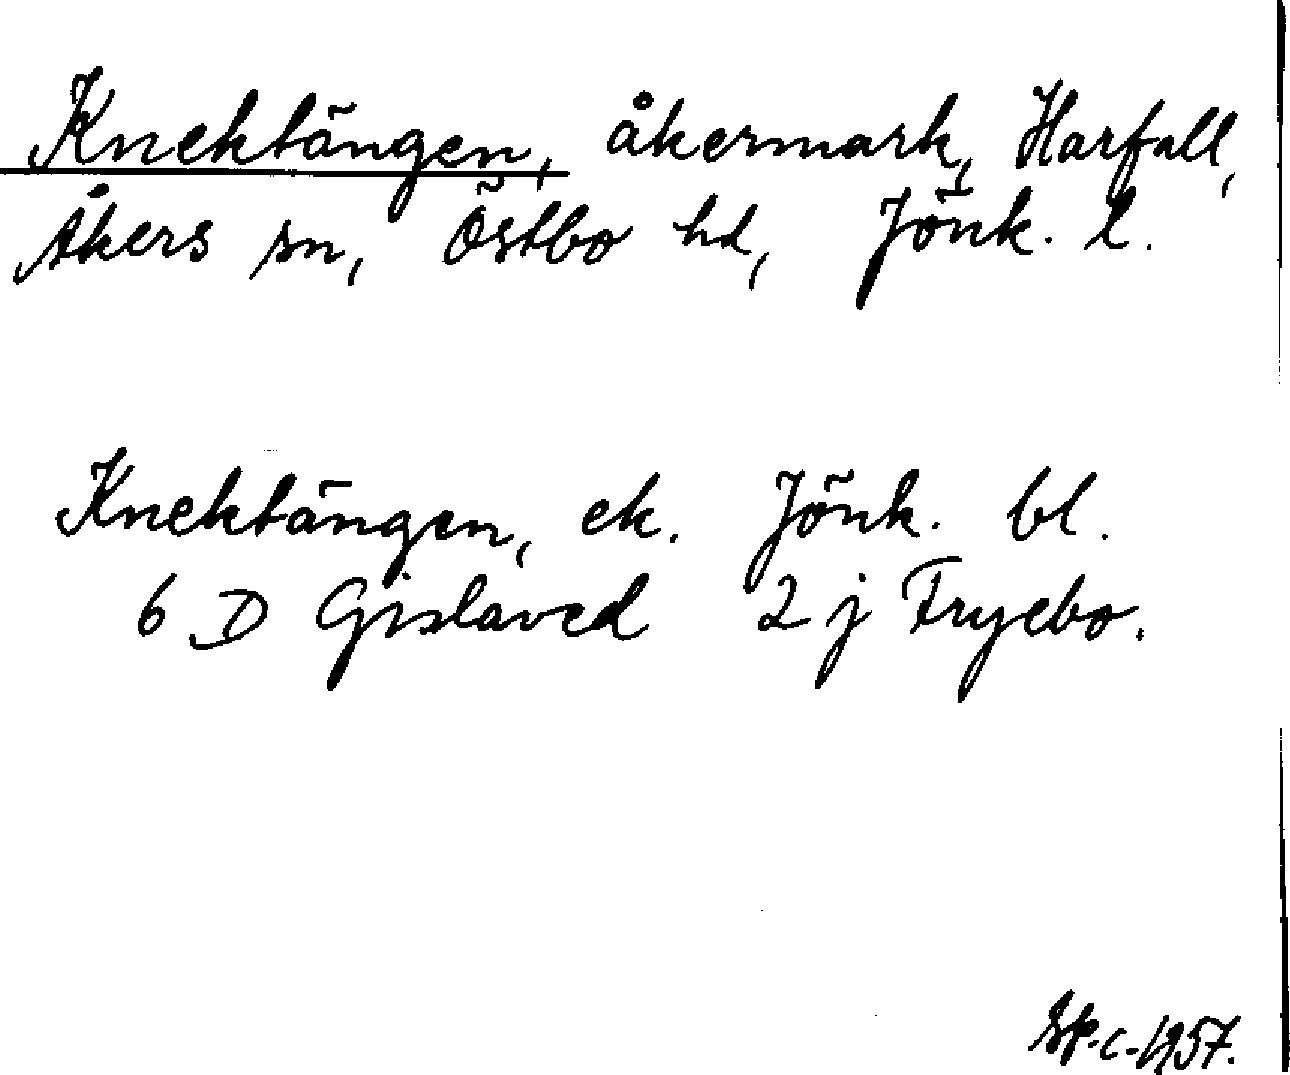 Knektängen, åkermark, Harfall,
Åkers sn, Östbo hd, Jönk. l.
Knektängen, ek. Jönk. bl.
6 D Gislaved 2 j Fryebo.
Sp.-c.-1957.